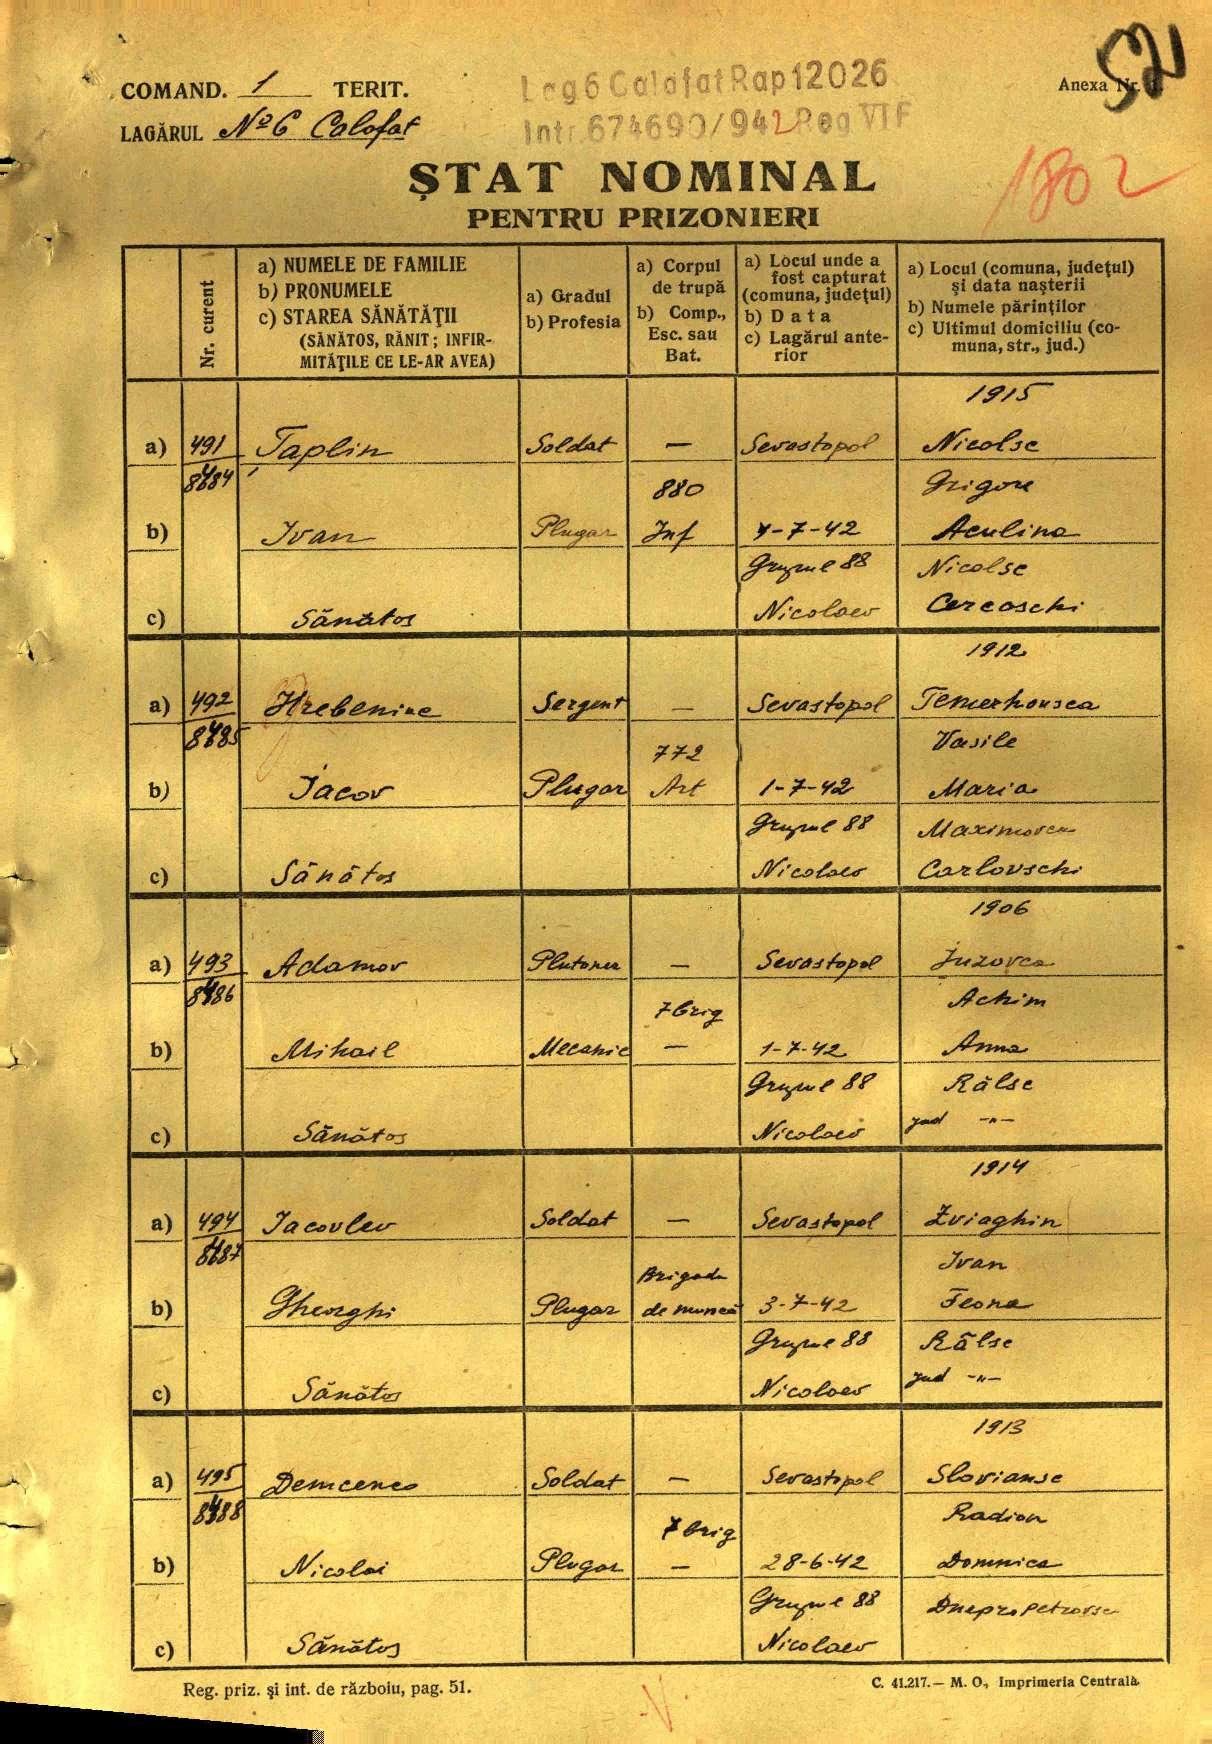 COMAND. 1 TERIT.
LAGĂRUL Nº 6 Calafat
Lag 6 Calafat Rap 12026
Intr. 674690/942 Reg VI F
Anexa Nr.
52
1802
ȘTAT NOMINAL
PENTRU PRIZONIERI
Nr. curent
a) NUMELE DE FAMILIE
b) PRONUMELE
c) STAREA SĂNĂTĂŢII
(SĂNĂTOS, RĂNIT; INFIR-
MITĂŢILE CE LE-AR AVEA)
a) Gradul
b) Profesia
a) Corpul
de trupă
b) Comp.,
Esc. sau
Bat.
a) Locul unde a
fost capturat
(comuna, judeţul)
b) Data
c) Lagărul ante-
rior
a) Locul (comuna, judeţul)
şi data naşterii
b) Numele părinţilor
c) Ultimul domiciliu (co-
muna, str., jud.)
1915
a) 491 Ţaplin Soldat — Sevastopol Nicolsc
880 Grigore
b) Ivan Plugar Inf -7-42 Aculina
Grupul 88 Nicolsc
c) Sănătos Nicolaev
1912
a) 492 Hrebenine Sergent — Sevastopol
772 Vasile
b) Iacov Plugar Art 1-7-42 Maria
Grupul 88
c) Sănătos Nicolaev Carlovschi
1906
a) 493 Adamov Plutoner — Sevastopol Iuzovca
7 brig Achim
b) Mihail Mecanic — 1-7-42 Anna
Grupul 88 Râlsc
c) Sănătos Nicolaev jud -"-
1914
a) 494 Iacovlev Soldat — Sevastopol Zviaghin
Brigada Ivan
b) Gheorghi Plugar de muncă 3-7-42 Feona
Grupul 88 Râlsc
c) Sănătos Nicolaev jud -"-
1913
a) 495 Demcenco Soldat — Sevastopol Slaviansc
7 brig Radion
b) Nicolai Plugar — 28-6-42 Domnica
Grupul 88 Dnepropetrovsc
c) Sănătos Nicolaev
Reg. priz. şi int. de războiu, pag. 51.
C. 41.217.— M. O., Imprimeria Centrală.